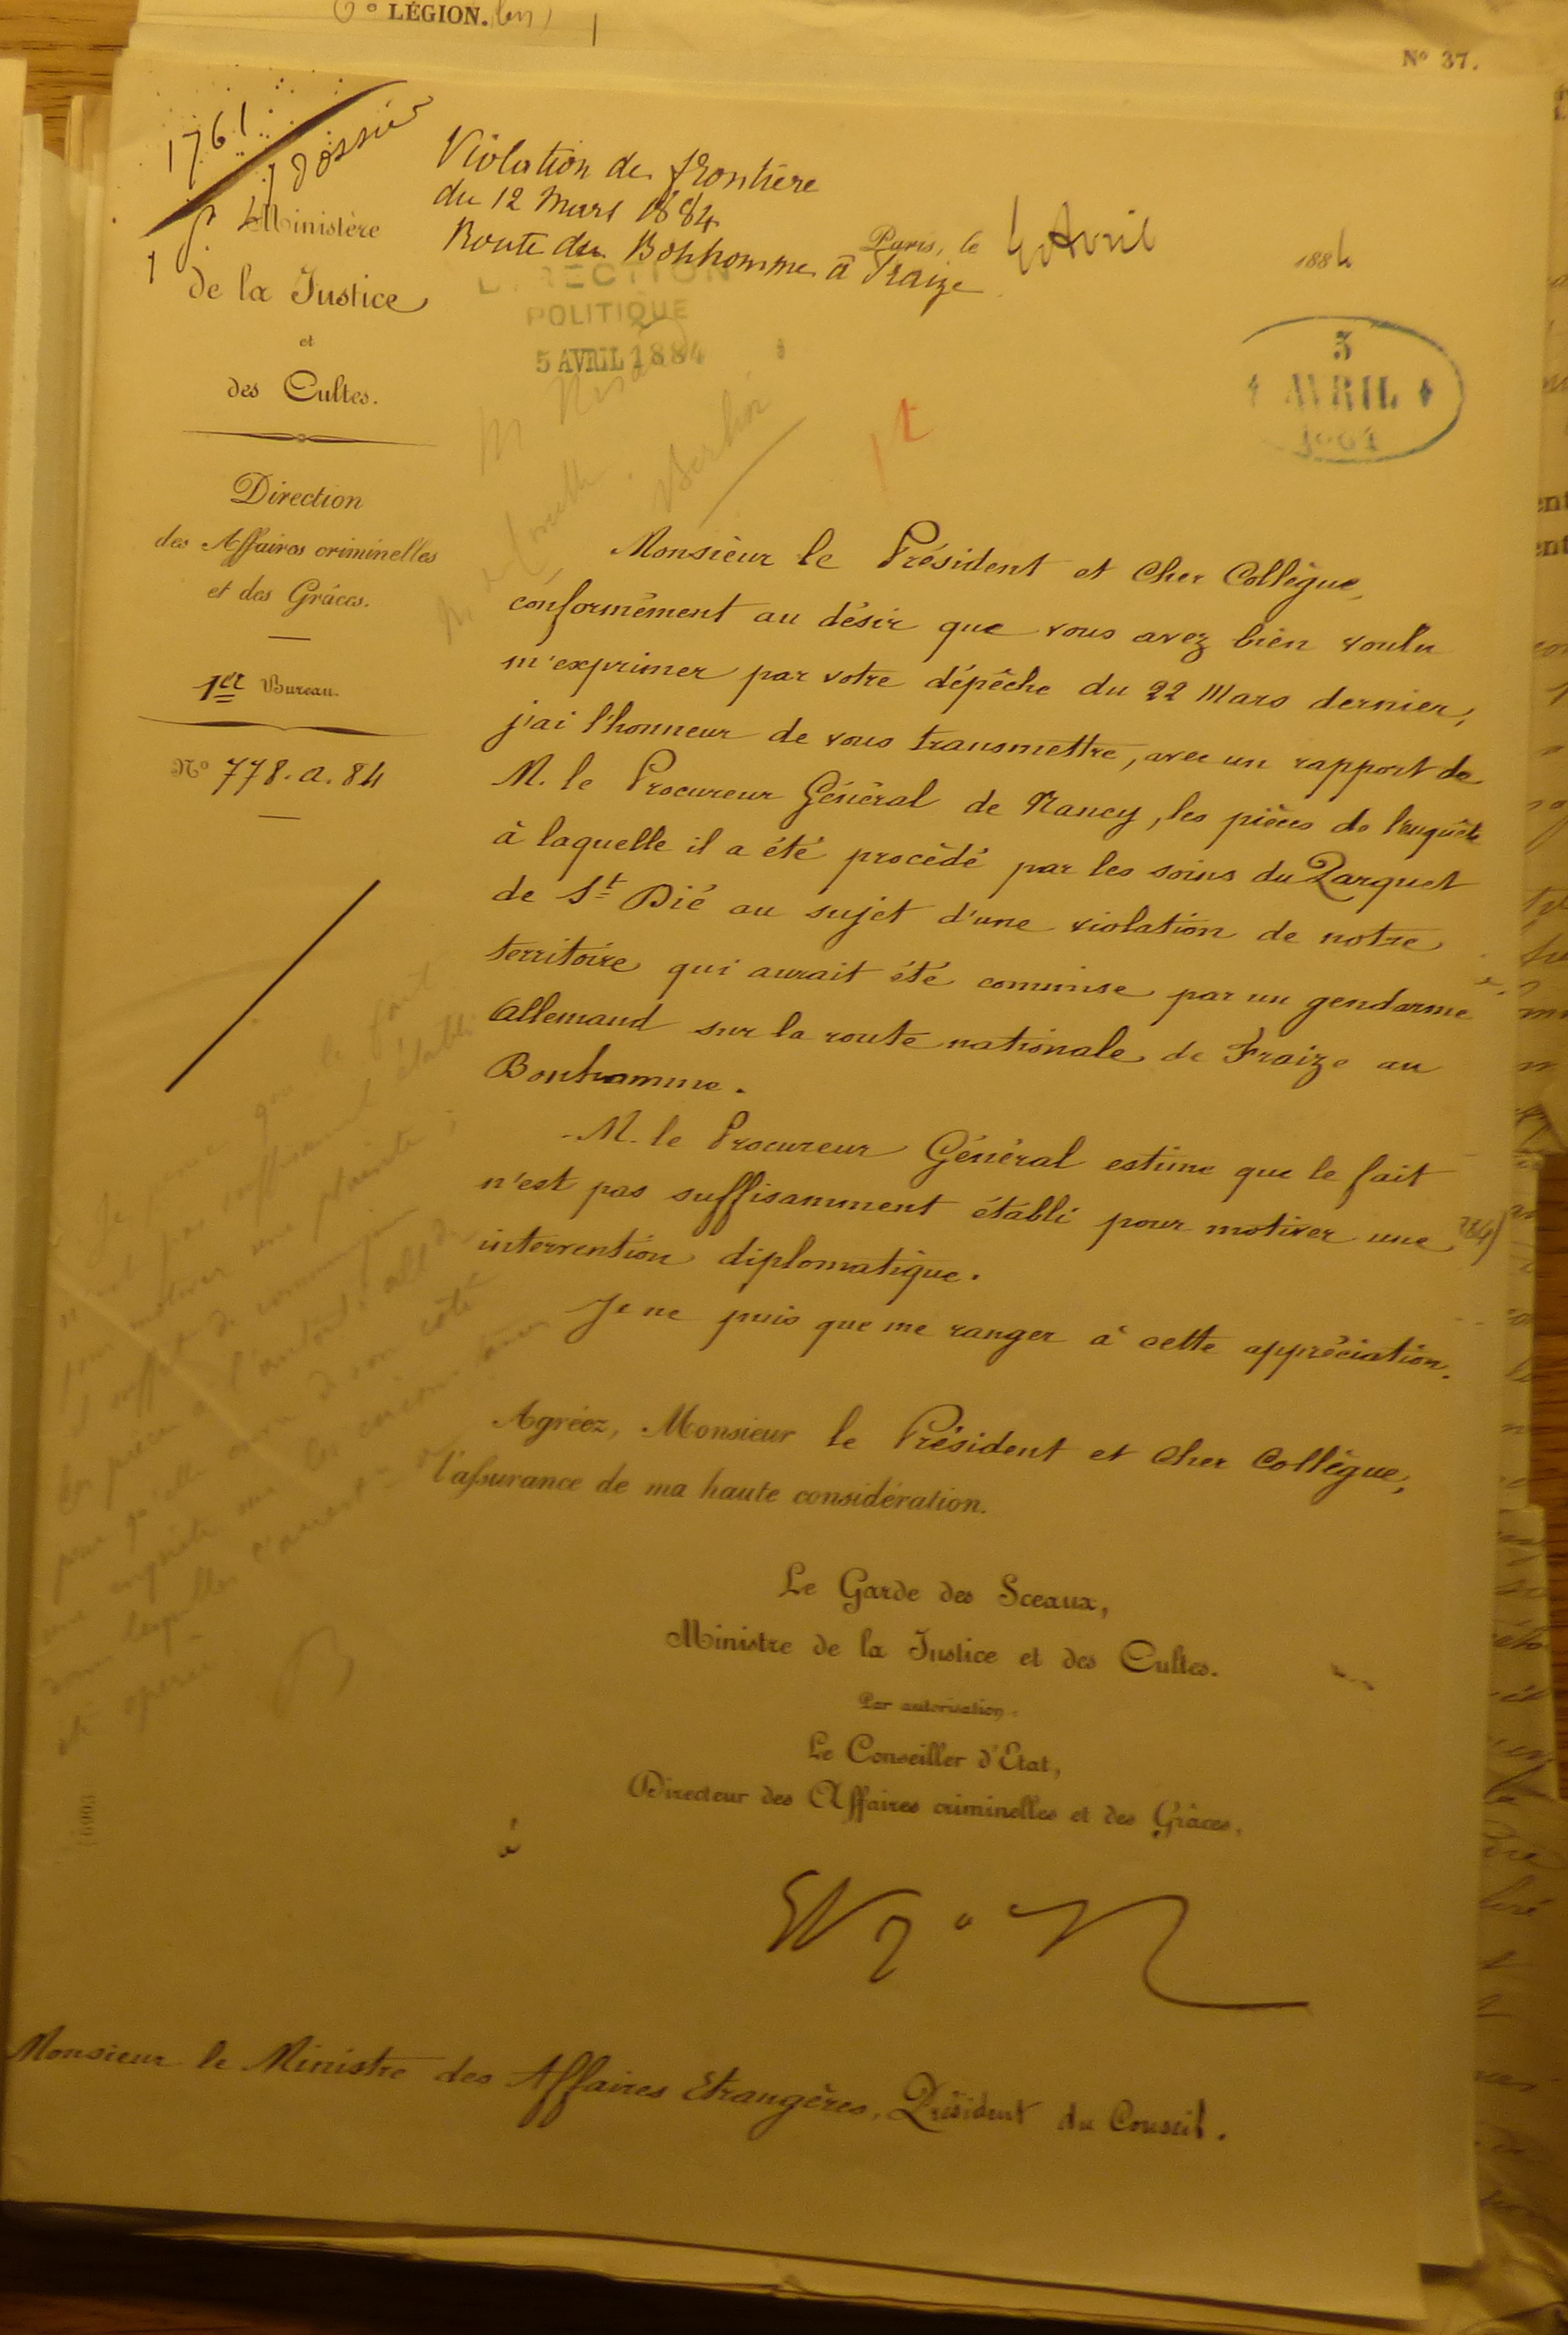 LÉGION.
Nº 37.
1761
1 dossier
Violation de frontière
du 12 Mars 1884
Route du Bonhomme à Fraize
Ministère
de la Justice
et
des Cultes.
Paris, le 4 Avril 1884
DIRECTION
POLITIQUE
5 AVRIL 1884
5
AVRIL
Berlin
Direction
des Affaires criminelles
et des Grâces.
1er Bureau.
Nº 778. a. 84
Monsieur le Président et Cher Collègue,
conformément au désir que vous avez bien voulu
m'exprimer par votre dépêche du 22 Mars dernier,
j'ai l'honneur de vous transmettre, avec un rapport de
M. le Procureur Général de Nancy, les pièces de l'enquête
à laquelle il a été procédé par les soins du Parquet
de St Dié au sujet d'une violation de notre
territoire qui aurait été commise par un gendarme
Allemand sur la route nationale de Fraize au
Bonhomme.
M. le Procureur Général estime que le fait
n'est pas suffisamment établi pour motiver une
intervention diplomatique.
Je ne puis que me ranger à cette appréciation.
Agréez, Monsieur le Président et Cher Collègue,
l'assurance de ma haute considération.
Le Garde des Sceaux,
Ministre de la Justice et des Cultes.
Par autorisation
Le Conseiller d'Etat,
Directeur des Affaires criminelles et des Grâces,
Monsieur le Ministre des Affaires Etrangères, Président du Conseil.
Je pense que le fait
n'est pas suffisamment établi
pour motiver une plainte ;
il suffit de communiquer
les pièces à l'autorité all de
pour qu'elle ouvre de son côté
une enquête sur les circonstances
dans lesquelles
été opérée